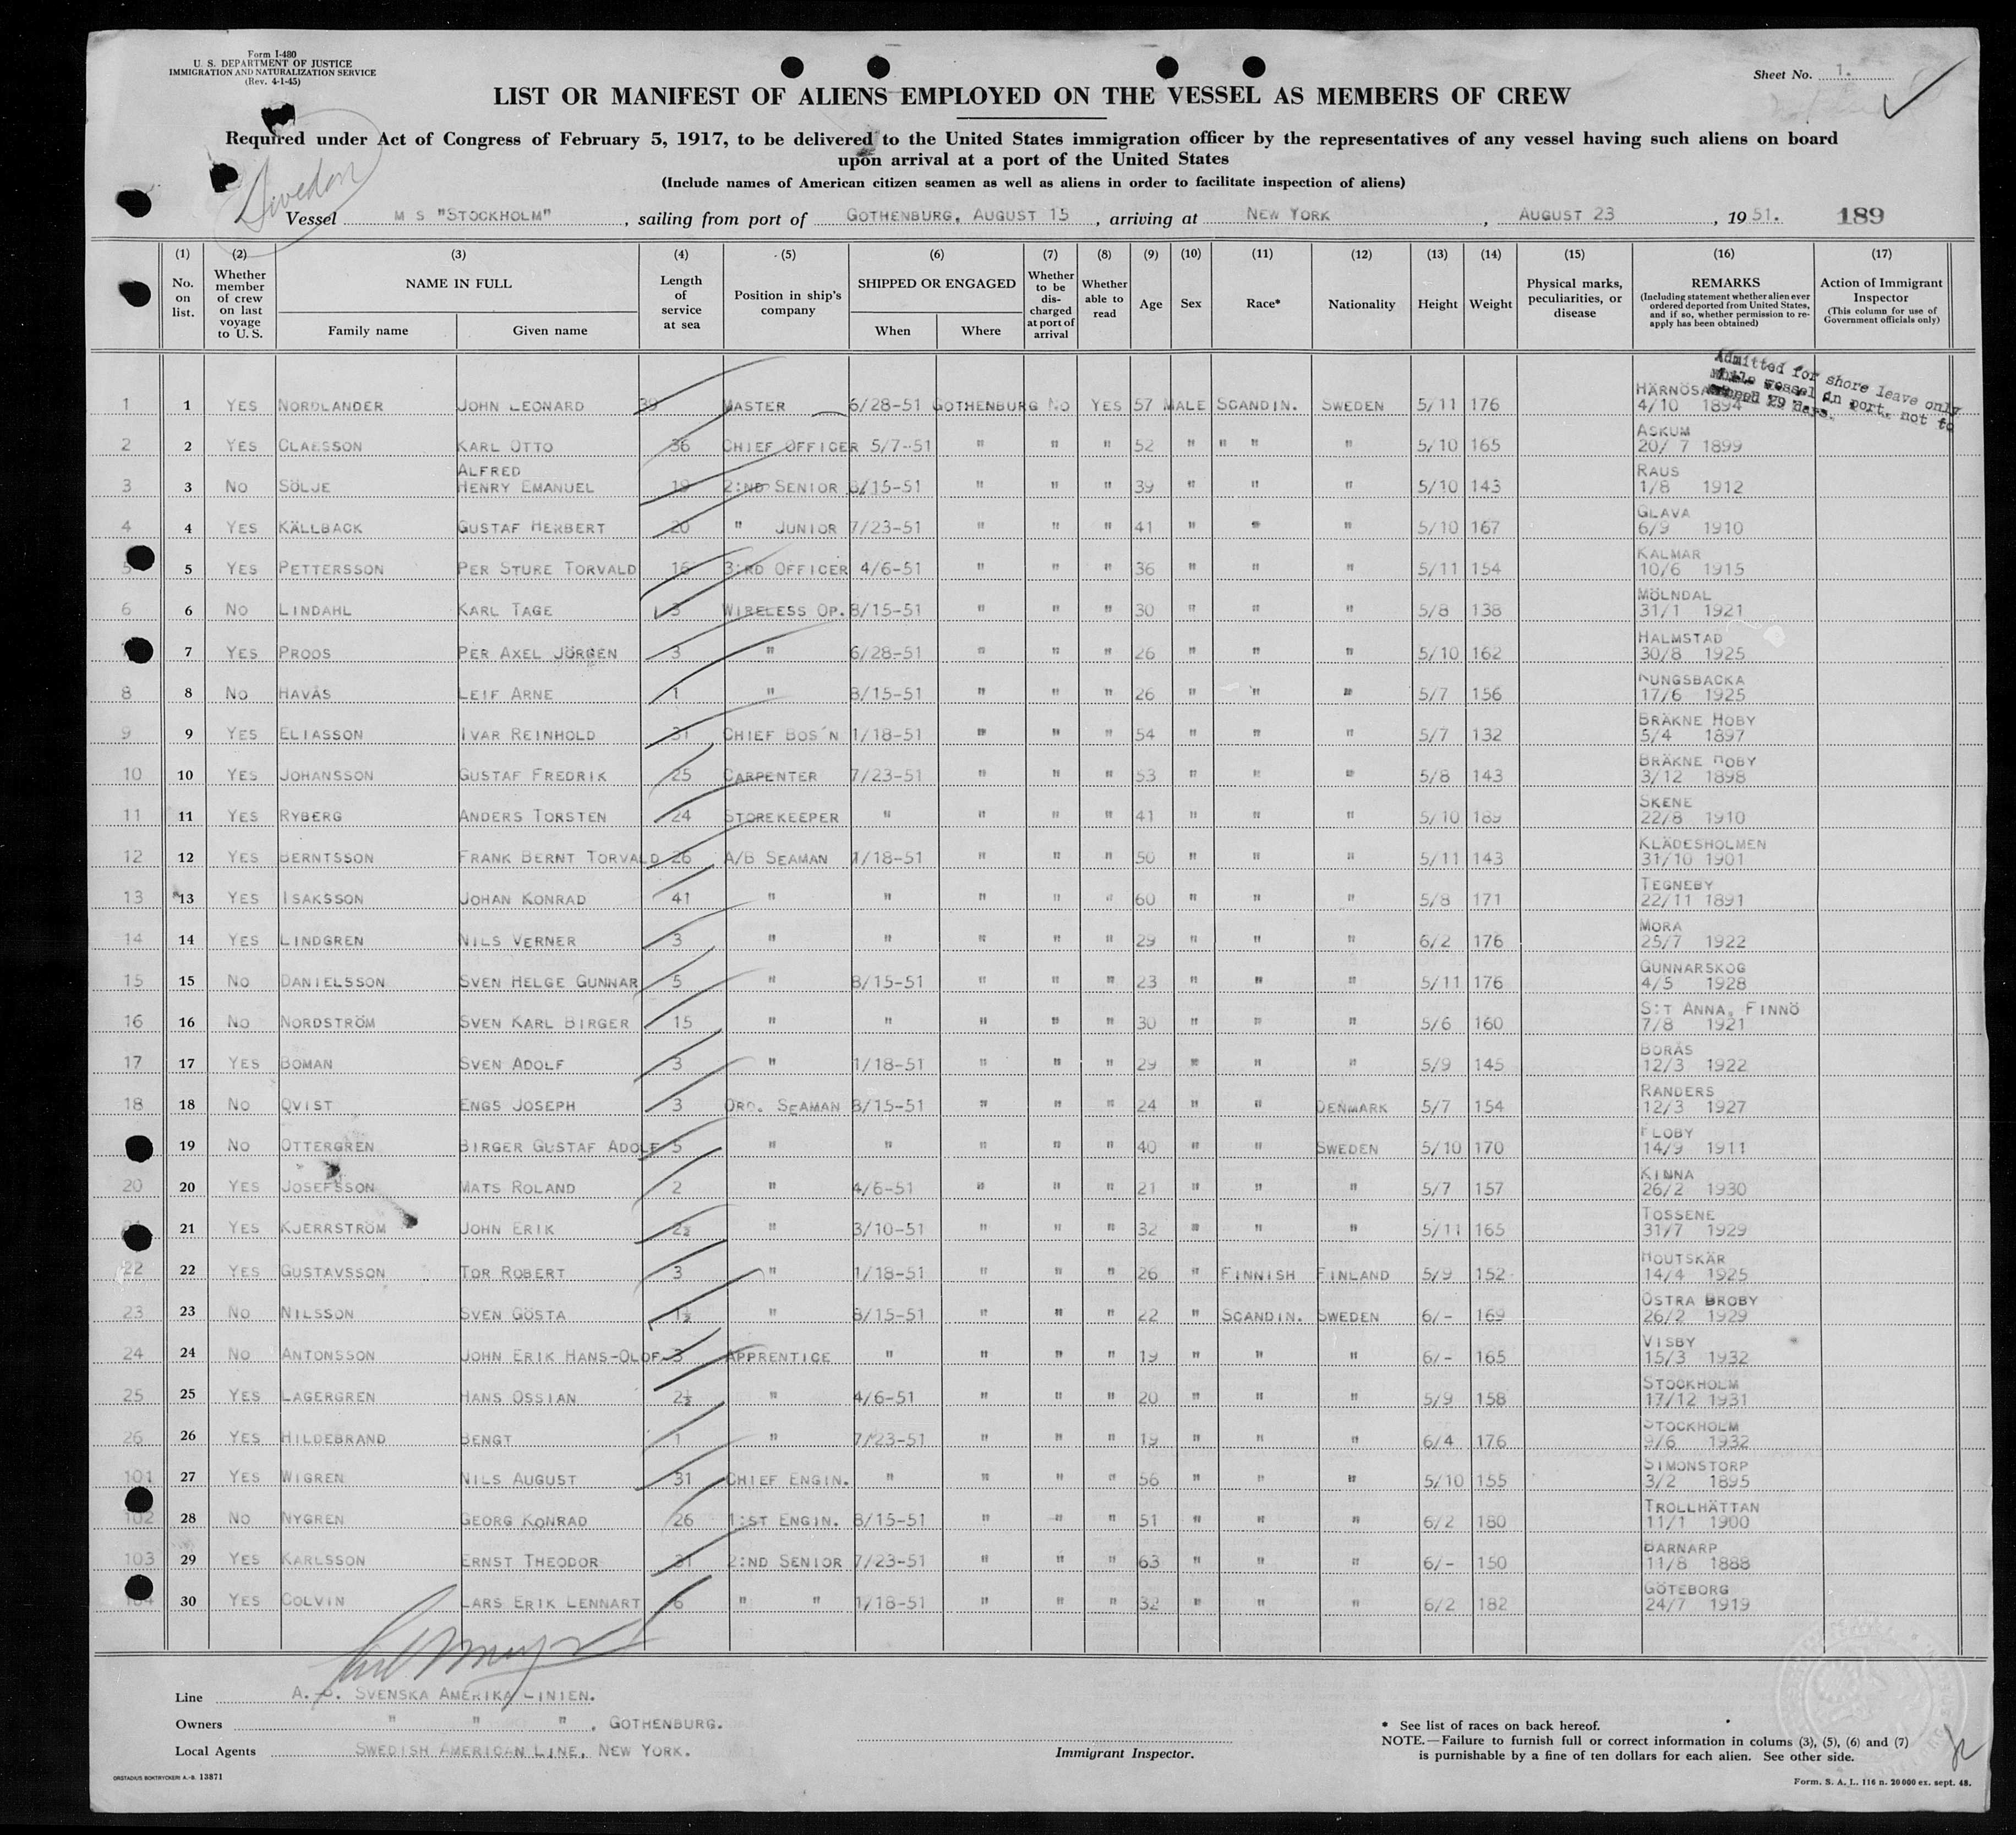 Form I-480
U. S. DEPARTMENT OF JUSTICE
IMMIGRATION AND NATURALIZATION SERVICE
(Rev. 4-1-45)
Sheet No. 1.
LIST OR MANIFEST OF ALIENS EMPLOYED ON THE VESSEL AS MEMBERS OF CREW
Required under Act of Congress of February 5, 1917, to be delivered to the United States immigration officer by the representatives of any vessel having such aliens on board
upon arrival at a port of the United States
(Include names of American citizen seamen as well as aliens in order to facilitate inspection of aliens)
Sweden
Vessel M S "STOCKHOLM", sailing from port of GOTHENBURG, AUGUST 15, arriving at NEW YORK, AUGUST 23, 1951. 189
(1) (2) (3) (4) (5) (6) (7) (8) (9) (10) (11) (12) (13) (14) (15) (16) (17)
No. on list. Whether member of crew on last voyage to U. S. NAME IN FULL Family name Given name Length of service at sea Position in ship's company SHIPPED OR ENGAGED When Where Whether to be discharged at port of arrival Whether able to read Age Sex Race* Nationality Height Weight Physical marks, peculiarities, or disease REMARKS (Including statement whether alien ever ordered deported from United States, and if so, whether permission to re-apply has been obtained) Action of Immigrant Inspector (This column for use of Government officials only)
Admitted for shore leave only
while vessel in port, not to
exceed 29 days.
1 1 YES NORDLANDER JOHN LEONARD 39 MASTER 6/28-51 GOTHENBURG NO YES 57 MALE SCANDIN. SWEDEN 5/11 176 4/10 1894
2 2 YES CLAESSON KARL OTTO 36 CHIEF OFFICER 5/7-51 " " " 52 " " " " 5/10 165 ASKUM 20/7 1899
3 3 NO SÖLJE ALFRED HENRY EMANUEL 19 2:ND SENIOR 8/15-51 " " " 39 " " " 5/10 143 RAUS 1/8 1912
4 4 YES KÄLLBACK GUSTAF HERBERT 20 " JUNIOR 7/23-51 " " " 41 " " " 5/10 167 GLAVA 6/9 1910
5 5 YES PETTERSSON PER STURE TORVALD 16 3:RD OFFICER 4/6-51 " " " 36 " " " 5/11 154 KALMAR 10/6 1915
6 6 NO LINDAHL KARL TAGE 3 WIRELESS OP. 8/15-51 " " " 30 " " " 5/8 138 MÖLNDAL 31/1 1921
7 YES PROOS PER AXEL JÖRGEN 3 " 6/28-51 " " " 26 " " " 5/10 162 HALMSTAD 30/8 1925
8 8 NO HAVÅS LEIF ARNE 1 " 8/15-51 " " " 26 " " " 5/7 156 KUNGSBACKA 17/6 1925
9 9 YES ELIASSON IVAR REINHOLD 31 CHIEF BOS'N 1/18-51 " " " 54 " " " 5/7 132 BRÄKNE HOBY 5/4 1897
10 10 YES JOHANSSON GUSTAF FREDRIK 25 CARPENTER 7/23-51 " " " 53 " " " 5/8 143 BRÄKNE HOBY 3/12 1898
11 11 YES RYBERG ANDERS TORSTEN 24 STOREKEEPER " " " " 41 " " " 5/10 189 SKENE 22/8 1910
12 12 YES BERNTSSON FRANK BERNT TORVALD 26 A/B SEAMAN 1/18-51 " " " 50 " " " 5/11 143 KLÄDESHOLMEN 31/10 1901
13 13 YES ISAKSSON JOHAN KONRAD 41 " " " " " 60 " " " 5/8 171 TEGNEBY 22/11 1891
14 14 YES LINDGREN NILS VERNER 3 " " " " " 29 " " " 6/2 176 MORA 25/7 1922
15 15 NO DANIELSSON SVEN HELGE GUNNAR 5 " 8/15-51 " " " 23 " " " 5/11 176 GUNNARSKOG 4/5 1928
16 16 NO NORDSTRÖM SVEN KARL BIRGER 15 " " " " " 30 " " " 5/6 160 S:T ANNA, FINNÖ 7/8 1921
17 17 YES BOMAN SVEN ADOLF 3 " 1/18-51 " " " 29 " " " 5/9 145 BORÅS 12/3 1922
18 18 NO QVIST ENGS JOSEPH 3 ORD. SEAMAN 8/15-51 " " " 24 " " DENMARK 5/7 154 RANDERS 12/3 1927
19 NO OTTERGREN BIRGER GUSTAF ADOLF 5 " " " " " 40 " " SWEDEN 5/10 170 FLOBY 14/9 1911
20 20 YES JOSEFSSON MATS ROLAND 2 " 4/6-51 " " " 21 " " " 5/7 157 KINNA 26/2 1930
21 21 YES KJERRSTRÖM JOHN ERIK 2½ " 3/10-51 " " " 32 " " " 5/11 165 TOSSENE 31/7 1929
22 22 YES GUSTAVSSON TOR ROBERT 3 " 1/18-51 " " " 26 " FINNISH FINLAND 5/9 152 HOUTSKÄR 14/4 1925
23 23 NO NILSSON SVEN GÖSTA 1½ " 8/15-51 " " " 22 " SCANDIN. SWEDEN 6/- 169 ÖSTRA BROBY 26/2 1929
24 24 NO ANTONSSON JOHN ERIK HANS-OLOF 3 APPRENTICE " " " " 19 " " " 6/- 165 VISBY 15/3 1932
25 25 YES LAGERGREN HANS OSSIAN 2½ " 4/6-51 " " " 20 " " " 5/9 158 STOCKHOLM 17/12 1931
26 26 YES HILDEBRAND BENGT 1 " 7/23-51 " " " 19 " " " 6/4 176 STOCKHOLM 9/6 1932
101 27 YES WIGREN NILS AUGUST 31 CHIEF ENGIN. " " " " 56 " " " 5/10 155 SIMONSTORP 3/2 1895
102 28 NO NYGREN GEORG KONRAD 26 1:ST ENGIN. 8/15-51 " " " 51 " " " 6/2 180 TROLLHÄTTAN 11/1 1900
103 29 YES KARLSSON ERNST THEODOR 31 2:ND SENIOR 7/23-51 " " " 63 " " " 6/- 150 BARNARP 11/8 1888
104 30 YES COLVIN LARS ERIK LENNART 6 " " 1/18-51 " " " 32 " " " 6/2 182 GÖTEBORG 24/7 1919
Line A.-B. SVENSKA AMERIKA LINIEN.
Owners " " ", GOTHENBURG.
Local Agents SWEDISH AMERICAN LINE, NEW YORK.
Immigrant Inspector.
* See list of races on back hereof.
NOTE.—Failure to furnish full or correct information in colums (3), (5), (6) and (7)
is punishable by a fine of ten dollars for each alien. See other side.
ORSTADIUS BOKTRYCKERI A.-B. 13871
Form. S. A. L. 116 n. 20 000 ex. sept. 48.